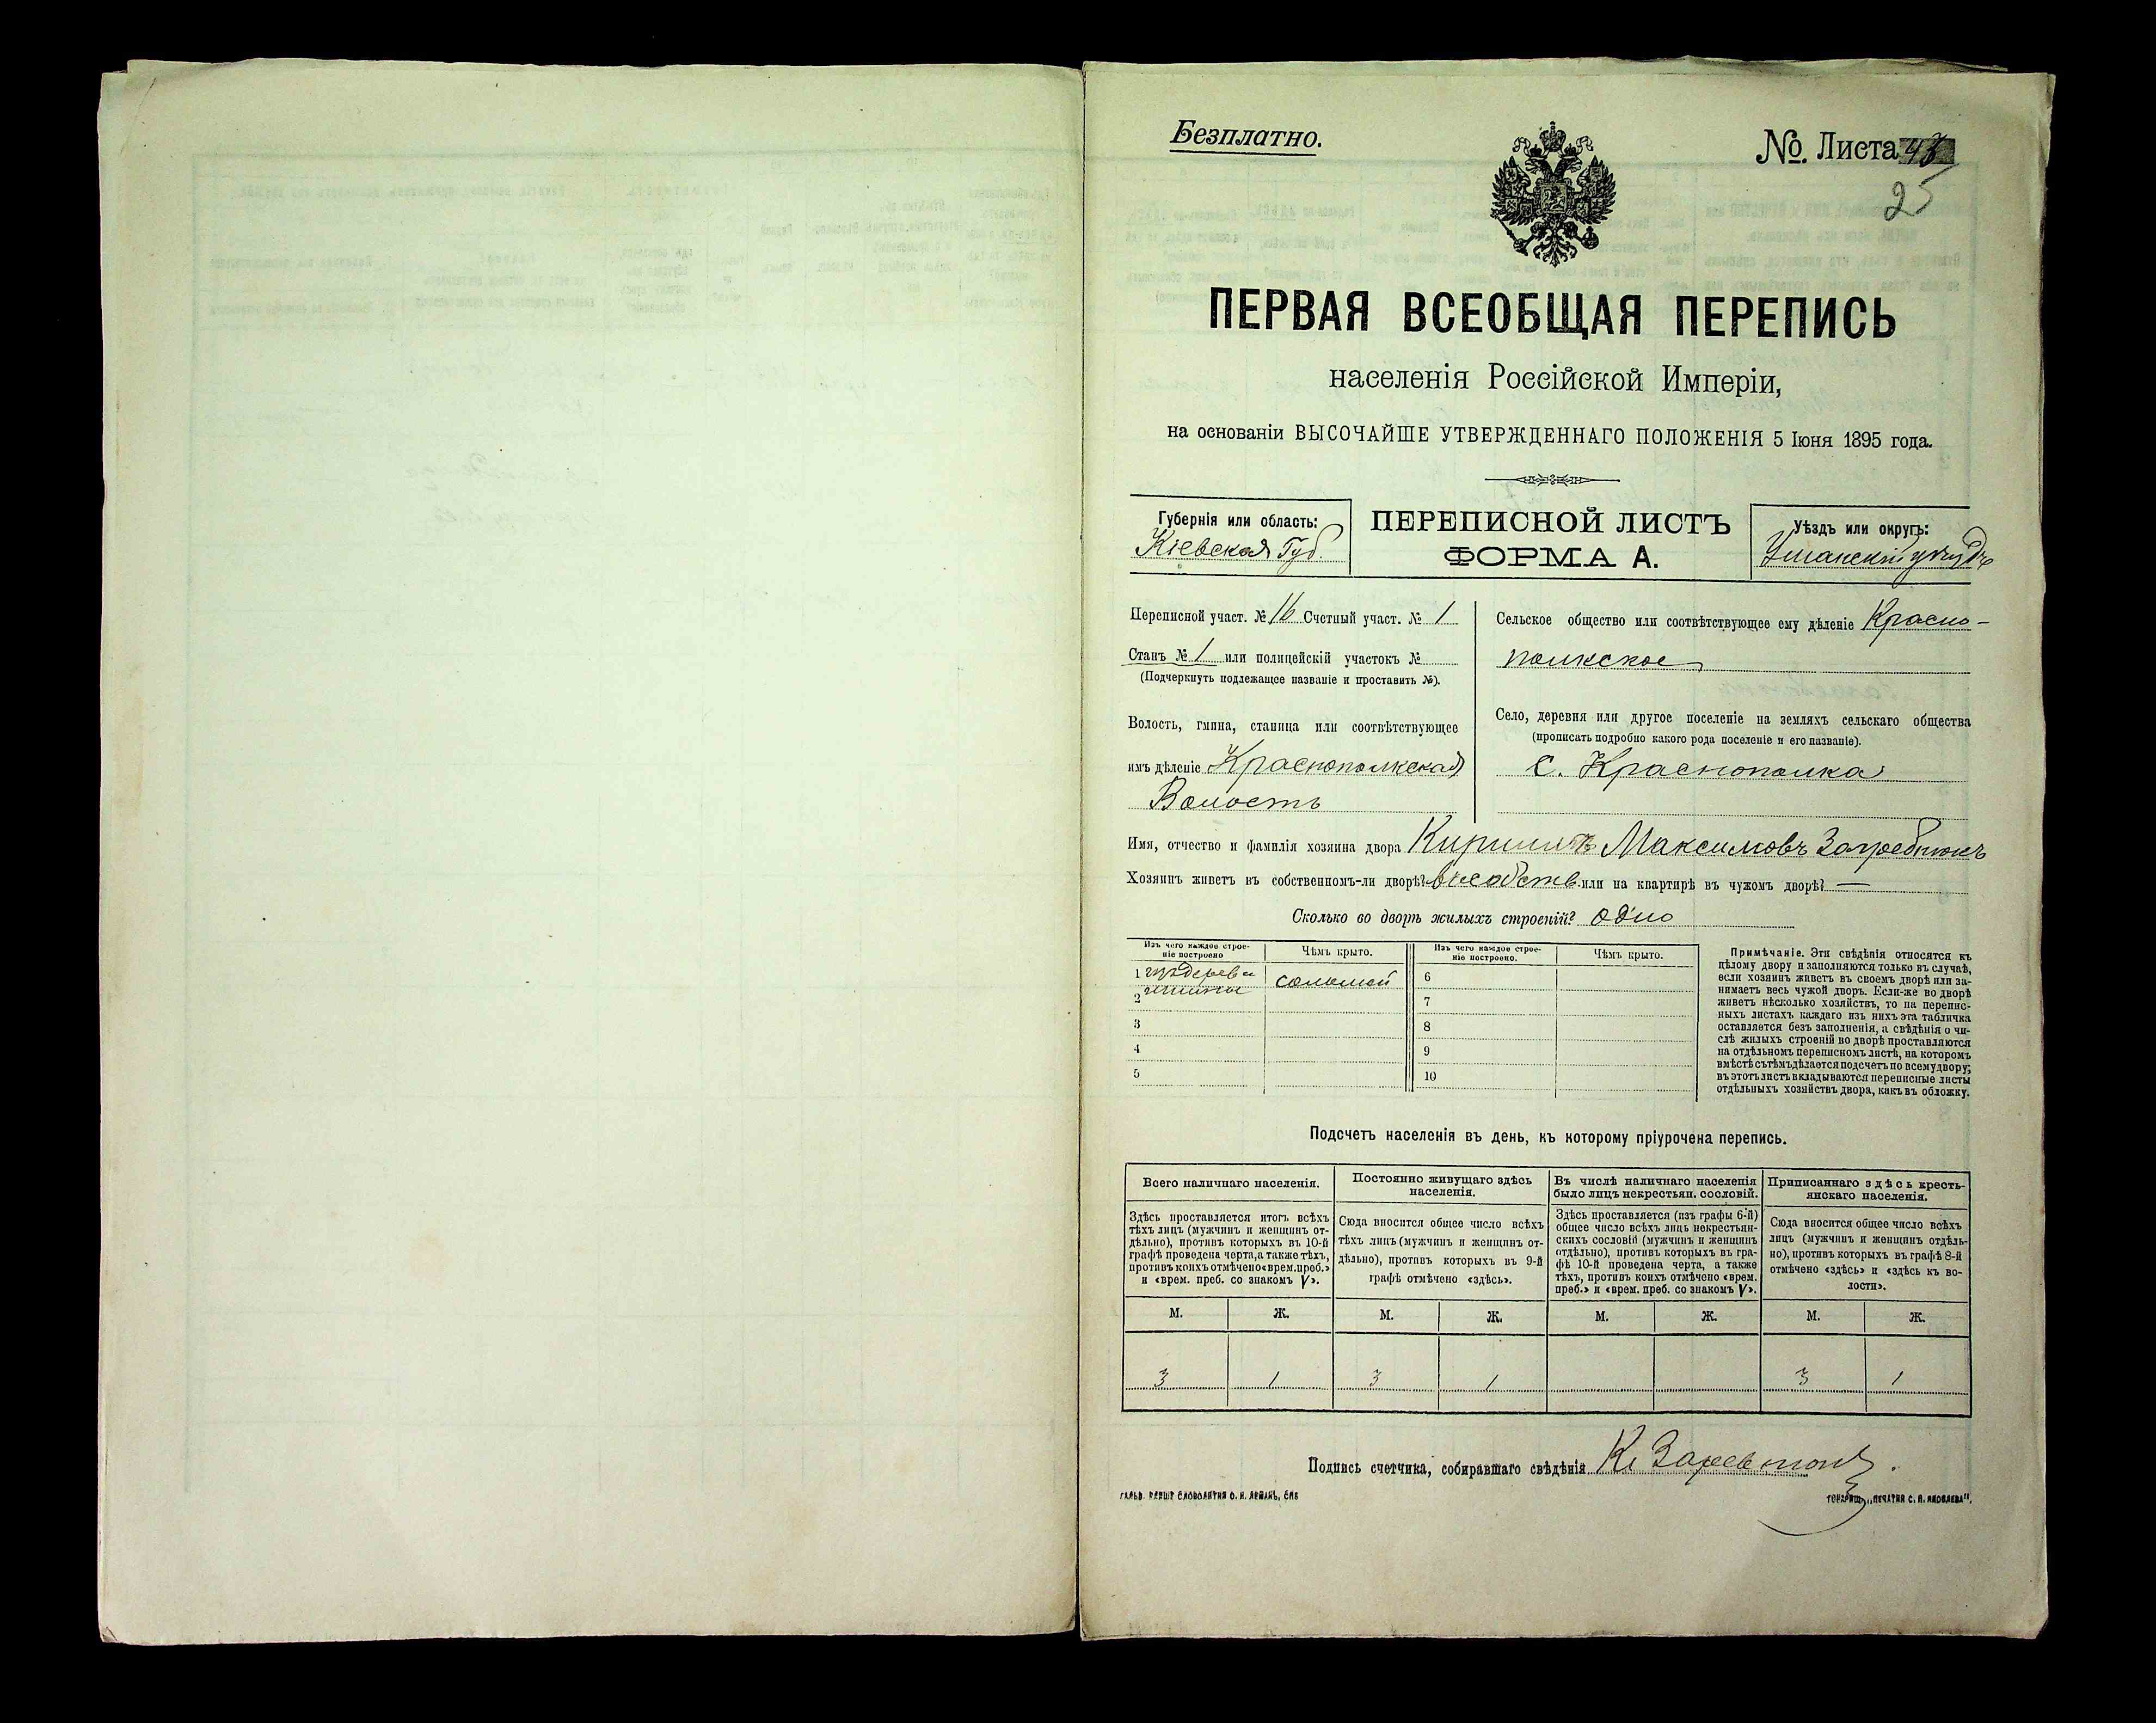 Безплатно.
№. Листа
25
ПЕРВАЯ ВСЕОБЩАЯ ПЕРЕПИСЬ
населенія Россійской Имперіи,
на основаніи ВЫСОЧАЙШЕ УТВЕРЖДЕННАГО ПОЛОЖЕНІЯ 5 Іюня 1895 года.
Губернія или область:
Кіевская Губ.
ПЕРЕПИСНОЙ ЛИСТЪ
ФОРМА А.
Уѣздъ или округъ:
Уманскій уѣздъ
Переписной участ. № 16 Счетный участ. № 1
Станъ № 1 или полицейскій участокъ №
(Подчеркнуть подлежащее названіе и проставить №).
Волость, гмина, станица или соотвѣтствующее
имъ дѣленіе Краснополкская
Волость
Сельское общество или соотвѣтствующее ему дѣленіе Красно-
полкское
Село, деревня или другое поселеніе на земляхъ сельскаго общества
(прописать подробно какого рода поселеніе и его названіе).
с. Краснополка
Имя, отчество и фамилія хозяина двора Кириллъ Максимовъ
Хозяинъ живетъ въ собственномъ-ли дворѣ? въ собств. или на квартирѣ въ чужомъ дворѣ? —
Сколько во дворѣ жилыхъ строеній? одно
Изъ чего каждое строе-
ніе построено
Чѣмъ крыто.
Изъ чего каждое строе-
ніе построено.
Чѣмъ крыто.
1 изъ дерева соломой 6
2 глины 7
3 8
4 9
5 10
Примѣчаніе. Эти свѣдѣнія относятся къ
цѣлому двору и заполняются только въ случаѣ,
если хозяинъ живетъ въ своемъ дворѣ или за-
нимаетъ весь чужой дворъ. Если-же во дворѣ
живетъ нѣсколько хозяйствъ, то на перепис-
ныхъ листахъ каждаго изъ нихъ эта табличка
оставляется безъ заполненія, а свѣдѣнія о чи-
слѣ жилыхъ строеній во дворѣ проставляются
на отдѣльномъ переписномъ листѣ, на которомъ
вмѣстѣ съ тѣмъ дѣлается подсчетъ по всему двору;
въ этотъ листъ вкладываются переписные листы
отдѣльныхъ хозяйствъ двора, какъ въ обложку.
Подсчетъ населенія въ день, къ которому пріурочена перепись.
Всего наличнаго населенія.
Здѣсь проставляется итогъ всѣхъ
тѣхъ лицъ (мужчинъ и женщинъ от-
дѣльно), противъ которыхъ въ 10-й
графѣ проведена черта, а также тѣхъ,
противъ коихъ отмѣчено «врем. преб.»
и «врем. преб. со знакомъ V».
Постоянно живущаго здѣсь
населенія.
Сюда вносится общее число всѣхъ
тѣхъ лицъ (мужчинъ и женщинъ от-
дѣльно), противъ которыхъ въ 9-й
графѣ отмѣчено «здѣсь».
Въ числѣ наличнаго населенія
было лицъ некрестьян. сословій.
Здѣсь проставляется (изъ графы 6-й)
общее число всѣхъ лицъ некрестьян-
скихъ сословій (мужчинъ и женщинъ
отдѣльно), противъ которыхъ въ гра-
фѣ 10-й проведена черта, а также
тѣхъ, противъ коихъ отмѣчено «врем.
преб.» и «врем. преб. со знакомъ V».
Приписаннаго здѣсь кресть-
янскаго населенія.
Сюда вносится общее число всѣхъ
лицъ (мужчинъ и женщинъ отдѣль-
но), противъ которыхъ въ графѣ 8-й
отмѣчено «здѣсь» и «здѣсь къ во-
лости».
М. Ж. М. Ж. М. Ж. М. Ж.
3 1 3 1 3 1
Подпись счетчика, собиравшаго свѣдѣнія